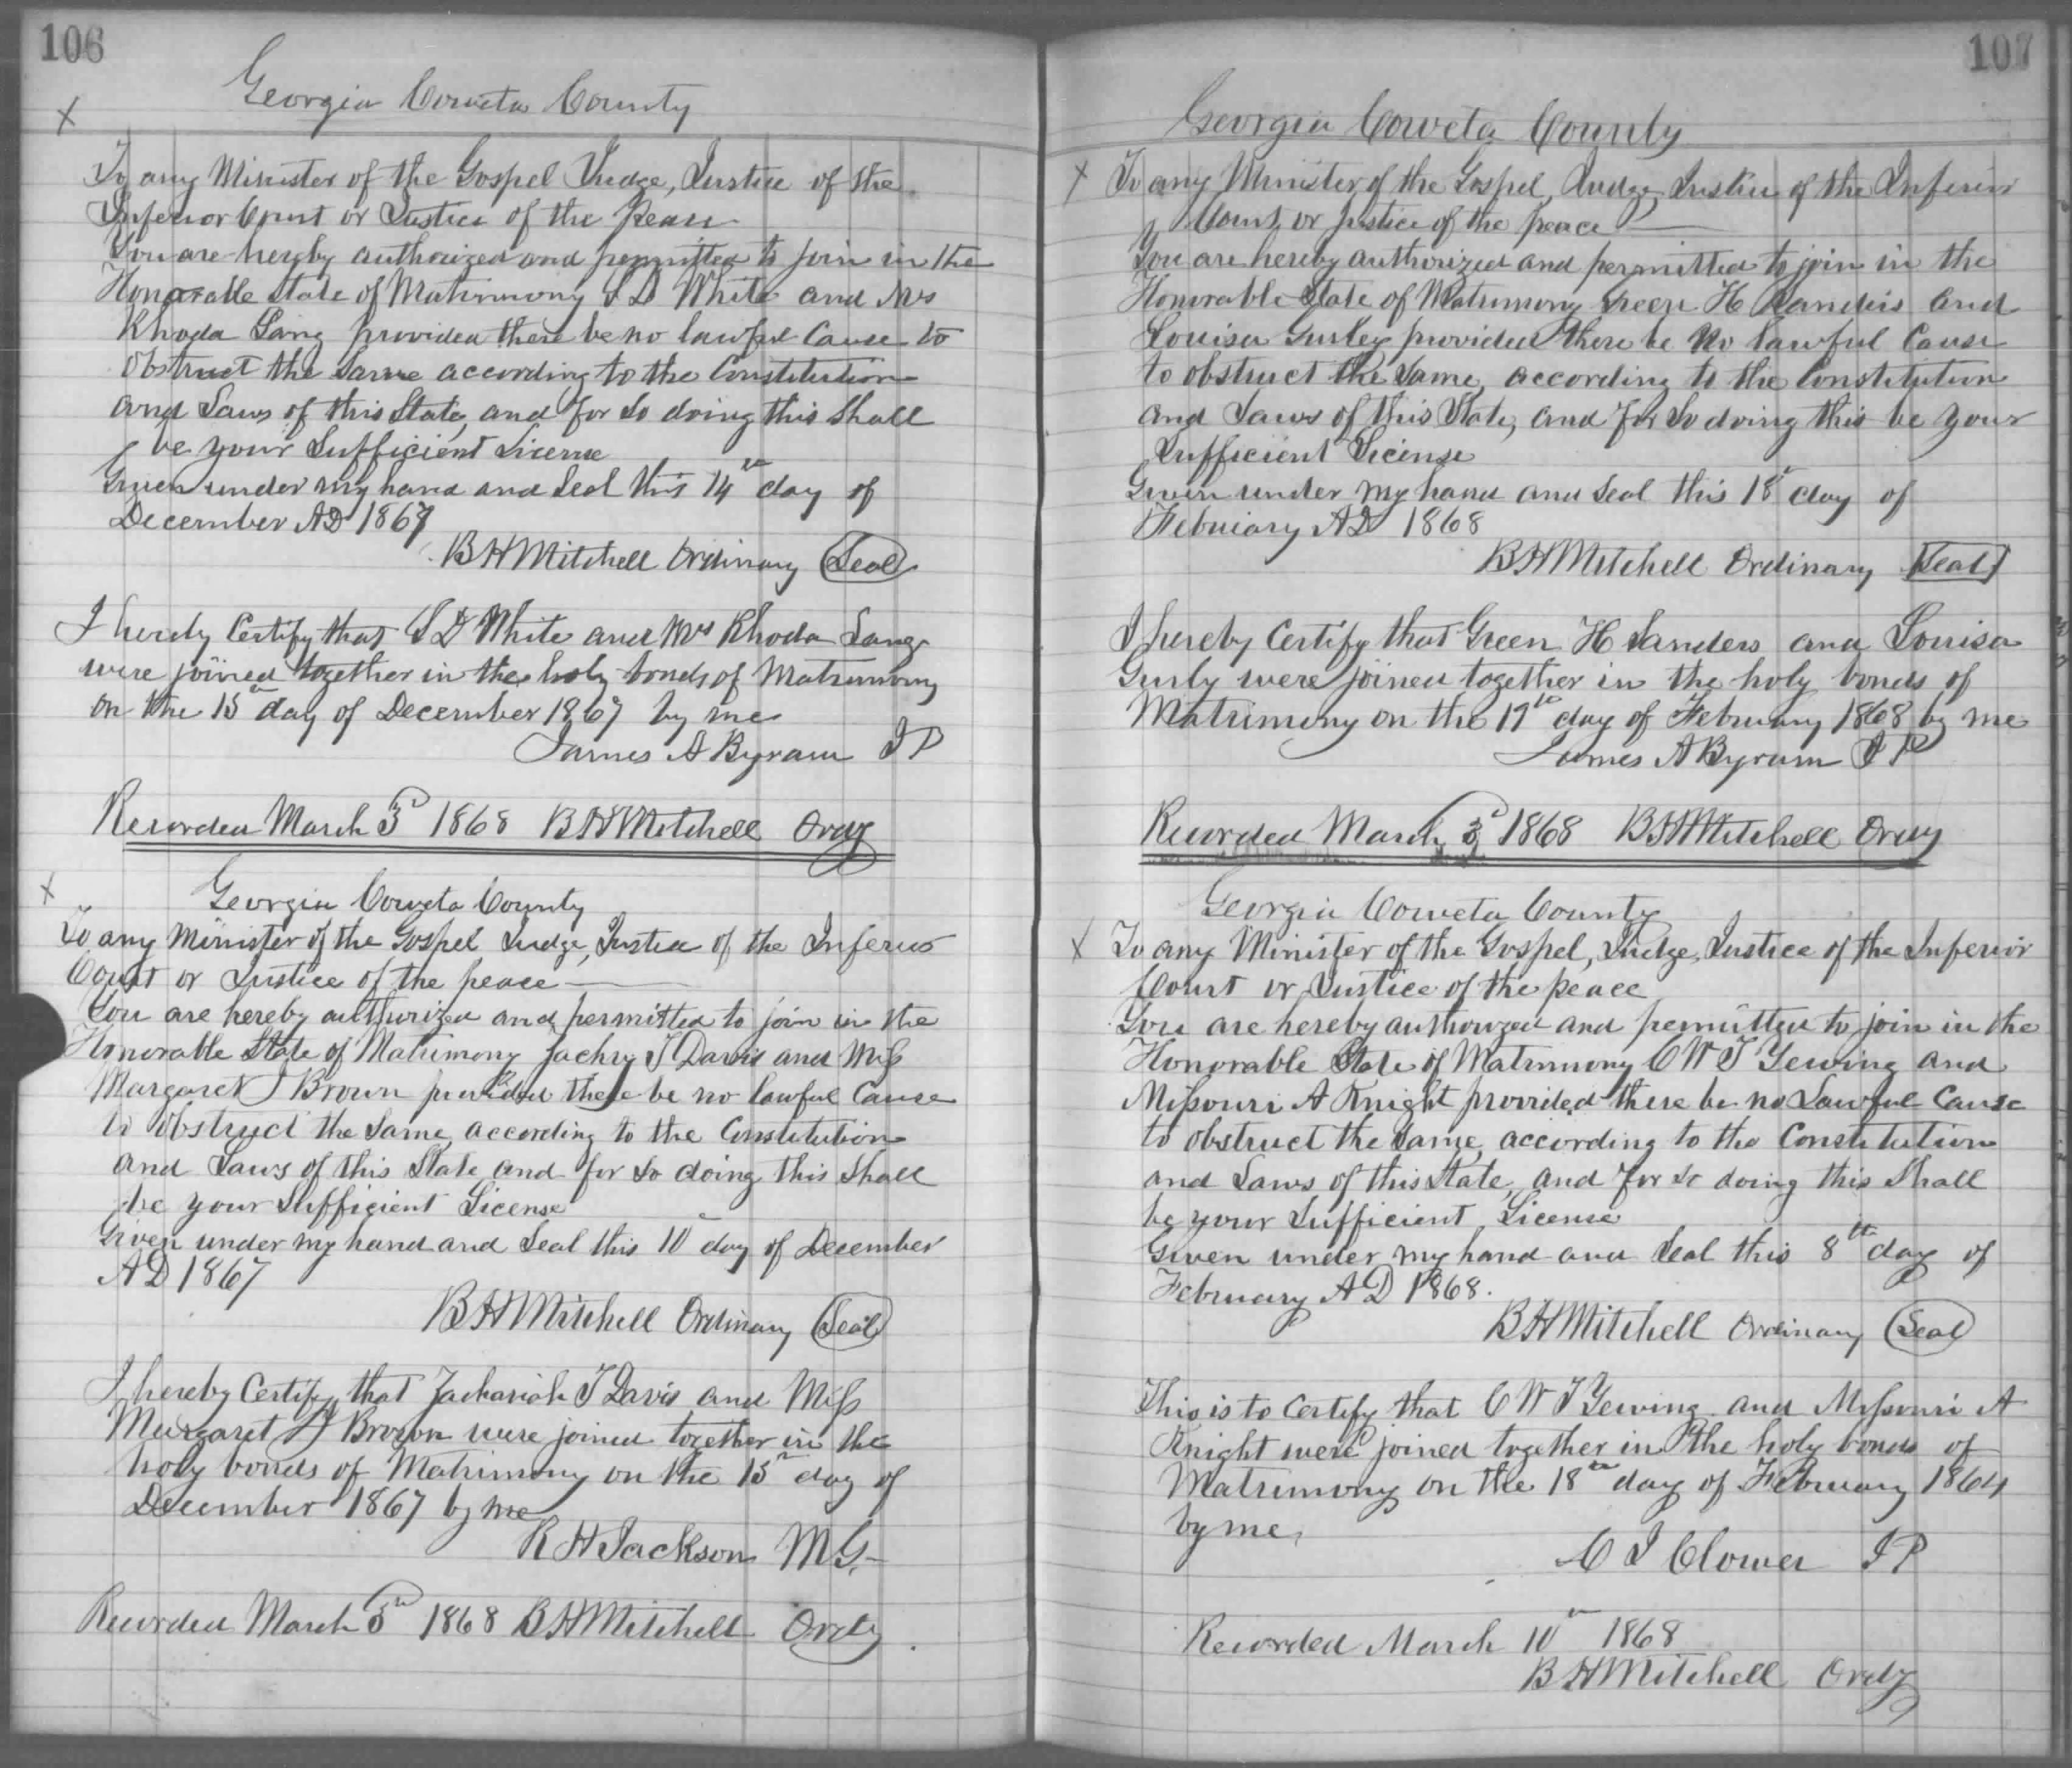 106
Georgia Coweta County
X
To any Minister of the Gospel Judge, Justice of the
Inferior Court or Justice of the Peace
You are hereby authorized and permitted to join in the
Honorable State of Matrimony S D White and Mrs
Rhoda Lang provided there be no lawful Cause to
obstruct the Same according to the Constitution
and Laws of this State, and for So doing this Shall
be your Sufficient License
Given under my hand and Seal this 14th day of
December AD 1867
B H Mitchell Ordinary Seal
I hereby Certify that S D White and Mrs Rhoda Lang
were joined together in the holy bonds of Matrimony
on the 15th day of December 1867 by me
James A Byram J P
Recorded March 3d 1868 B H Mitchell Ordy
X
Georgia Coweta County
To any Minister of the Gospel Judge, Justice of the Inferior
Court or Justice of the peace
You are hereby authorized and permitted to join in the
Honorable State of Matrimony Zachry T Davis and Miss
Margaret J Brown provided there be no lawful Cause
to obstruct the Same, according to the Constitution
and Laws of this State and for So doing this Shall
be your Sufficient License
Given under my hand and Seal this 10 day of December
AD 1867
B H Mitchell Ordinary Seal
I hereby Certify that Zachariah T Davis and Miss
Margaret J Brown were joined together in the
holy bonds of Matrimony on the 15th day of
December 1867 by me
R H Jackson M G.
Recorded March 3d 1868 B H Mitchell Ordy.
107
Georgia Coweta County
X To any Minister of the Gospel, Judge, Justice of the Inferior
Court, or justice of the peace
You are hereby authorized and permitted to join in the
Honorable State of Matrimony Green H Sanders and
Louisa Gurley provided there be No lawful Cause
to obstruct the Same, according to the Constitution
and Laws of this State, and for So doing this be your
Sufficient License
Given under my hand and Seal this 18 day of
February AD 1868
B H Mitchell Ordinary Seal
I hereby Certify that Green H Sanders and Louisa
Gurly were joined together in the holy bonds of
Matrimony on the 19th day of February 1868 by me
James A Byram J P
Recorded March 3d 1868 B H Mitchell Ordy
Georgia Coweta County
X To any Minister of the Gospel, Judge, Justice of the Inferior
Court or Justice of the peace
You are hereby authorized and permitted to join in the
Honorable State of Matrimony C W T Yewing and
Missouri A Knight provided there be no Lawful Cause
to obstruct the Same, according to the Constitution
and Laws of this State, and for So doing this Shall
be your Sufficient License
Given under my hand and Seal this 8th day of
February A D 1868.
B H Mitchell Ordinary Seal
This is to Certify that C W T Yewing and Missouri A
Knight were joined together in the holy bonds of
Matrimony on the 18th day of February 1864
by me,
C J Clower J P
Recorded March 10th 1868
B H Mitchell Ordy